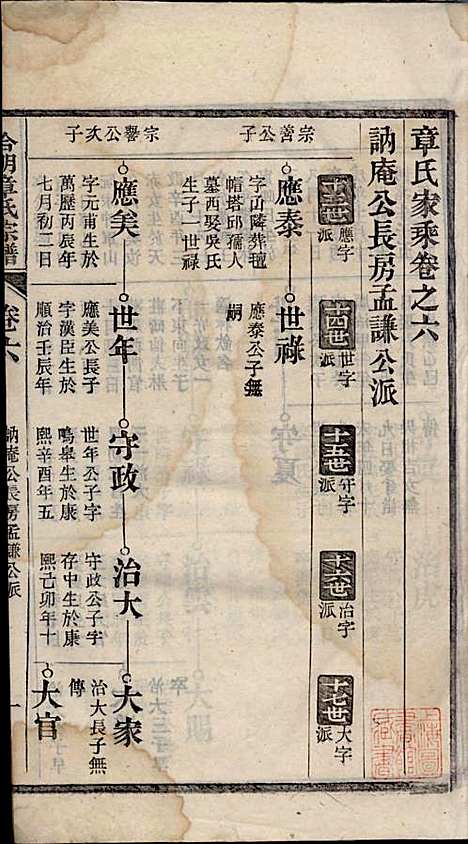 章氏家乘卷之六
訥庵公長房孟謙公派
十三世 應字派
十四世 世字派
十五世 守字派
十六世 治字派
十七世 大字派
宗善公子
應泰
字山隣葬氊
帽塔邱孺人
墓西娶吳氏
生子一世祿
世祿
應泰公子無
嗣
宗譽公次子
應美
字元甫生於
萬歷丙辰年
七月初二日
世年
應美公長子
字漢臣生於
順治壬辰年
守政
世年公子字
鳴舉生於康
熙辛酉年五
治大
守政公子字
存中生於康
熙己卯年十
大家
治大長子無
傳
大官
章氏宗譜
卷六
訥庵公長房孟謙公派
一